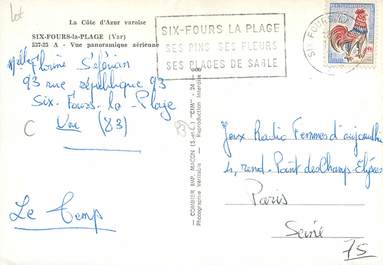 Lot
La Côte d'Azur varoise
SIX-FOURS-la-PLAGE (Var)
537-25 A - Vue panoramique aérienne
SIX-FOURS LA PLAGE
SES PINS SES FLEURS
SES PLAGES DE SABLE
93 rue république 93
Six-Fours-la Plage
Var (83)
C
Le Temp
COMBIER IMP. MACON (S.-et-L.) "CIM"
Photographie Véritable - Reproduction
Jeux Radio Femmes d'aujourd'hui
4, rond-Point des Champs-Elysées
Paris
Seine
75